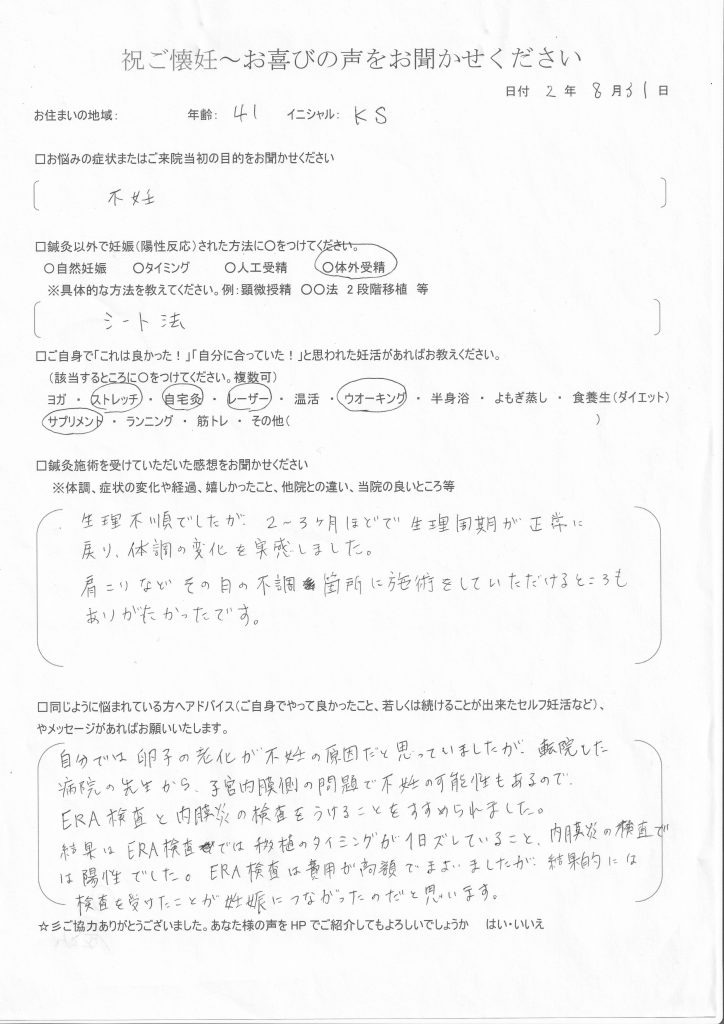 祝ご懐妊～お喜びの声をお聞かせください
日付 2 年 8 月 31 日
お住まいの地域： 年齢： 41 イニシャル： KS
□お悩みの症状またはご来院当初の目的をお聞かせください
不妊
□鍼灸以外で妊娠（陽性反応）された方法に○をつけてください。
○自然妊娠 ○タイミング ○人工受精 ○体外受精
※具体的な方法を教えてください。例：顕微授精 ○○法 2段階移植 等
シート法
□ご自身で「これは良かった！」「自分に合っていた！」と思われた妊活があればお教えください。
（該当するところに○をつけてください。複数可）
ヨガ ・ ストレッチ ・ 自宅灸 ・ レーザー ・ 温活 ・ ウオーキング ・ 半身浴 ・ よもぎ蒸し ・ 食養生（ダイエット）
サプリメント ・ ランニング ・ 筋トレ ・ その他（ ）
□鍼灸施術を受けていただいた感想をお聞かせください
※体調、症状の変化や経過、嬉しかったこと、他院との違い、当院の良いところ等
生理不順でしたが、2～3ヶ月ほどで生理周期が正常に
戻り、体調の変化を実感しました。
肩こりなどその日の不調箇所に施術をしていただけるところも
ありがたかったです。
□同じように悩まれている方へアドバイス（ご自身でやって良かったこと、若しくは続けることが出来たセルフ妊活など）、
やメッセージがあればお願いいたします。
自分では卵子の老化が不妊の原因だと思っていましたが、転院した
病院の先生から、子宮内膜側の問題で不妊の可能性もあるので、
ERA検査と内膜炎の検査をうけることをすすめられました。
結果はERA検査では移植のタイミングが1日ズレていること、内膜炎の検査で
は陽性でした。ERA検査は費用が高額でまよいましたが、結果的には
検査を受けたことが妊娠につながったのだと思います。
☆彡ご協力ありがとうございました。あなた様の声をHPでご紹介してもよろしいでしょうか はい・いいえ